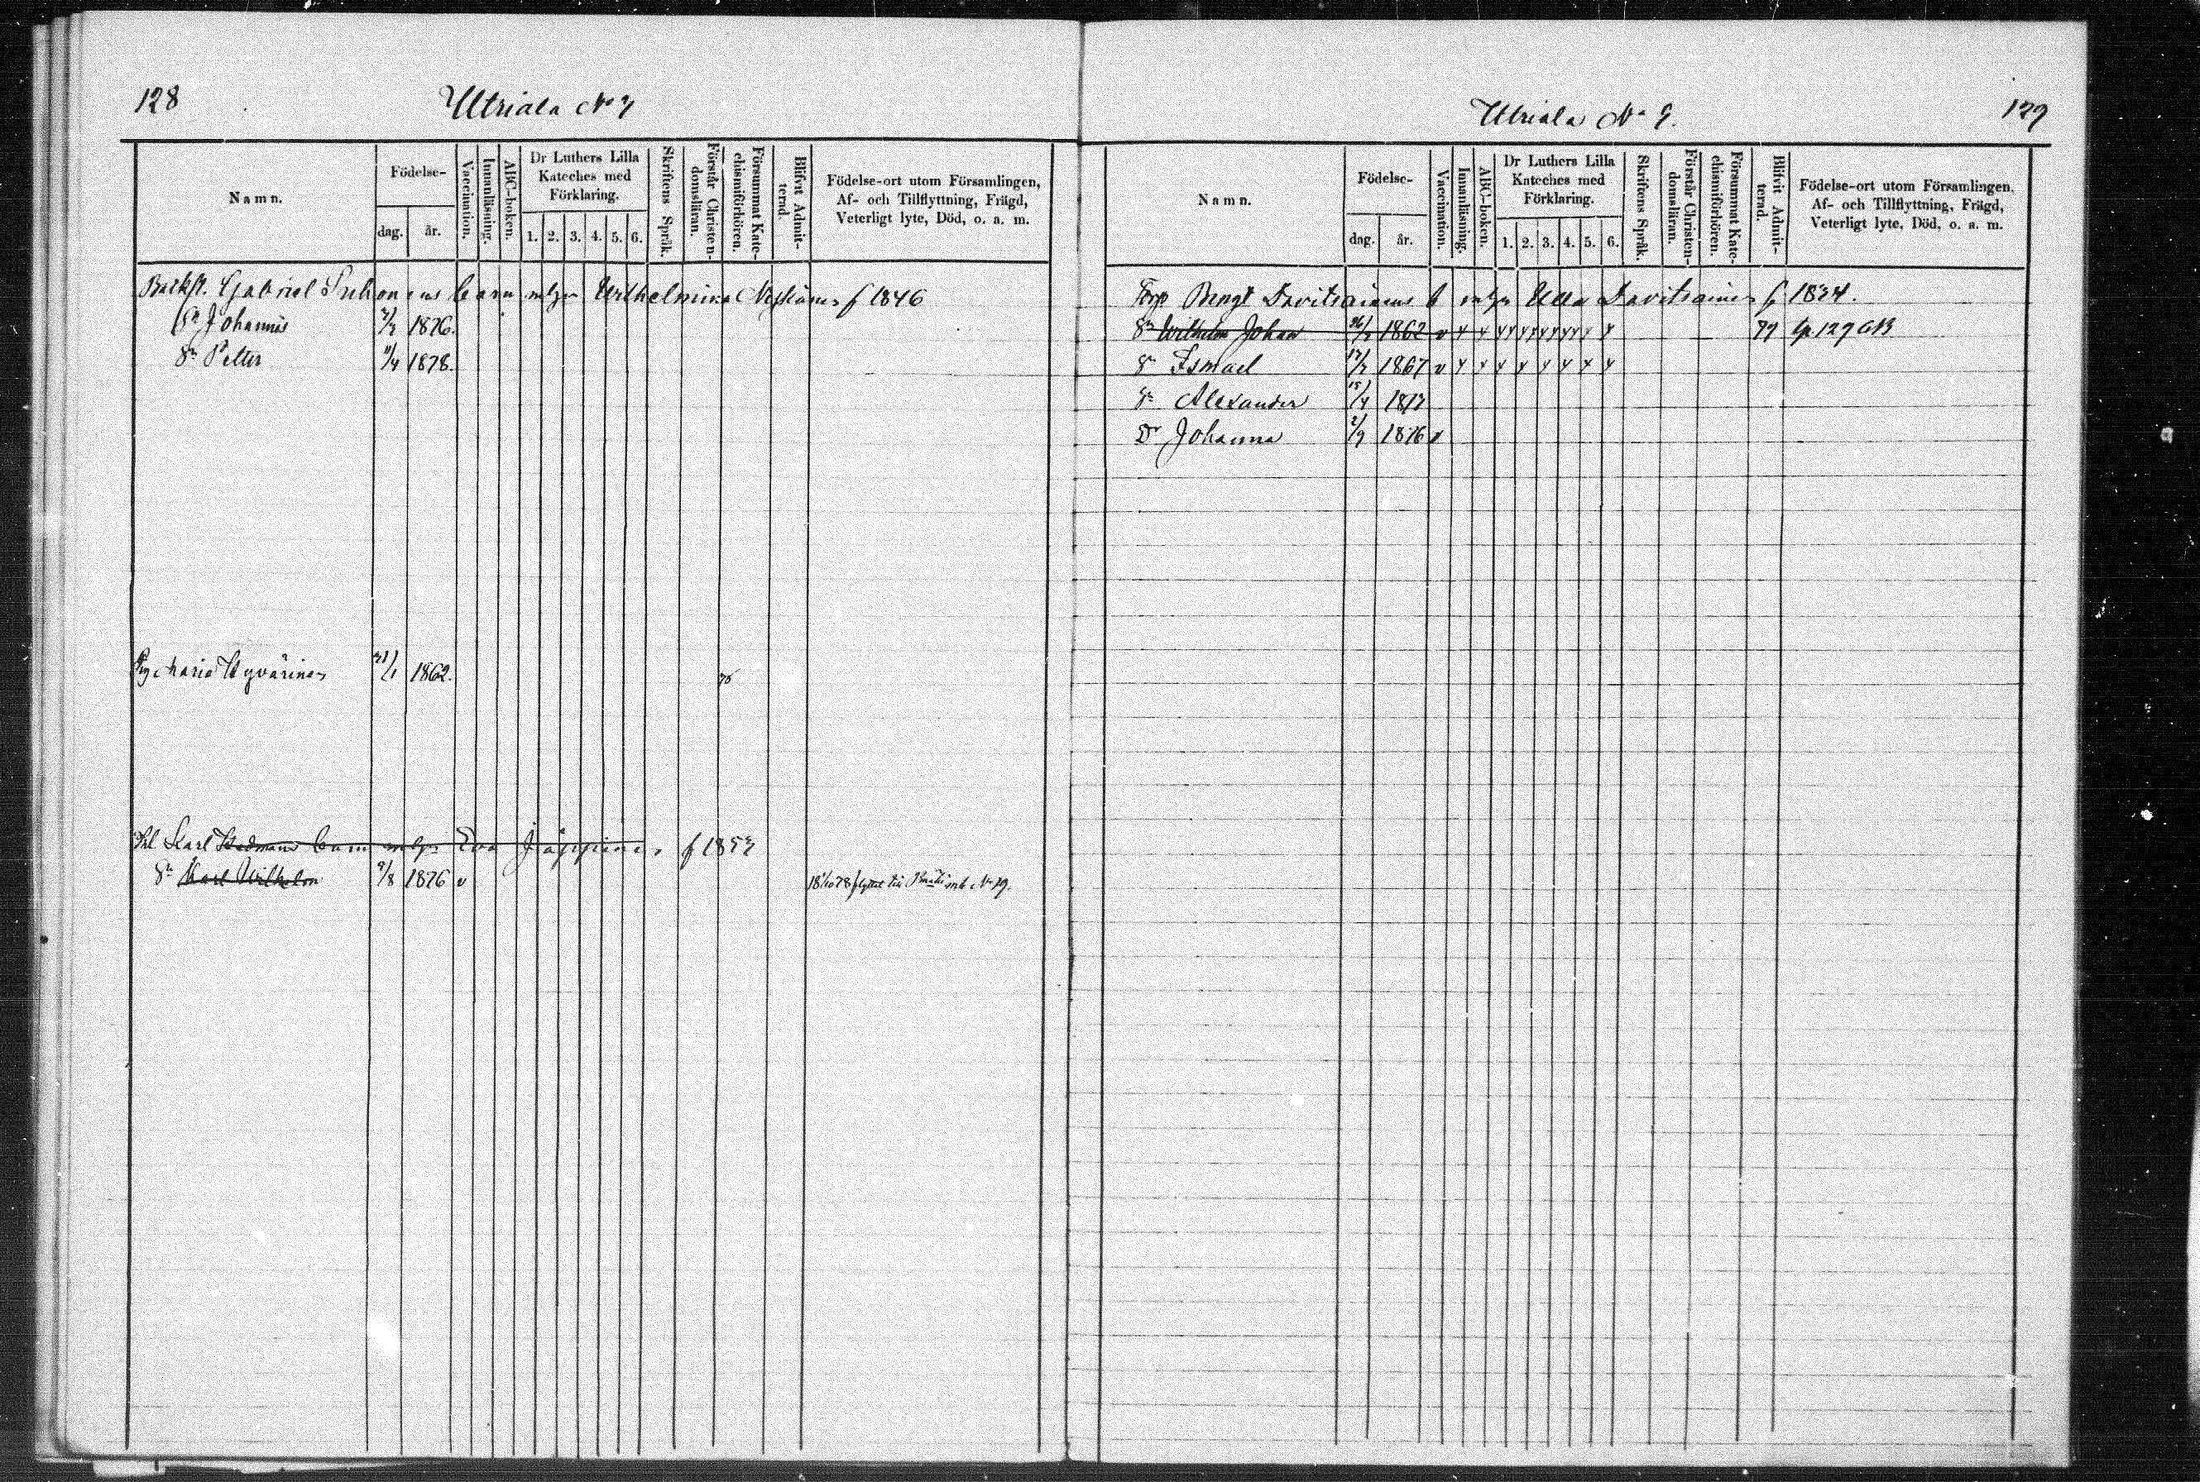 128
Utriala No 7
Namn.
Födelse-
dag.
år.
Vaccination.
Innanläsning.
ABC-boken.
Dr Luthers Lilla
Kateches med
Förklaring.
1. 2. 3. 4. 5. 6.
Skriftens Språk.
Förstår Christen-
domsläran.
Försummat Kate-
chismiförhören.
Blifvit Admit-
terad.
Födelse-ort utom Församlingen,
Af- och Tillflyttning, Frägd,
Veterligt lyte, Död, o. a. m.
Gabriel Suhonens barn m Wilhelmina f 1846
Sn Johannes 1876.
Sn Petter 11/4 1878.
Maria Hyvärinen 1862.
Karl barn m Eva f 1853
Sn Karl Wilhelm 9/8 1876 v flyttat till No 19.
Utriala No 9.
129
Namn.
Födelse-
dag.
år.
Vaccination.
Innanläsning.
ABC-boken.
Dr Luthers Lilla
Kateches med
Förklaring.
1. 2. 3. 4. 5. 6.
Skriftens Språk.
Förstår Christen-
domsläran.
Försummat Kate-
chismiförhören.
Blifvit Admit-
terad.
Födelse-ort utom Församlingen,
Af- och Tillflyttning, Frägd,
Veterligt lyte, Död, o. a. m.
Torp Bengt Davitsainens b m Ulla Davitsainen f 1834.
Sn Wilhelm Johan 1862 v
Sn Ismael 1867 v
Sn Alexander 15/4
Dr Johanna 2/9 1876 v